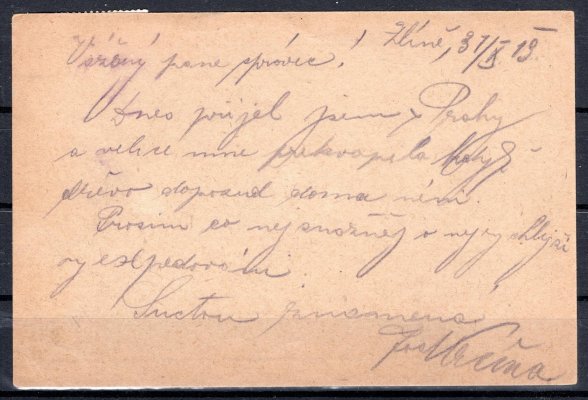 Vážený pane správce!
Zlíně, 31/X 19.
Dnes přijel jsem z Prahy
a velice mne překvapilo když
dřevo doposud doma není.
Prosím co nejsnažněj o nejrychlejší
vyexpedování
Úctou znamená
Jos